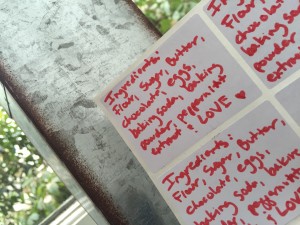 Ingredients:
Flour, Sugar, Butter,
chocolate, eggs,
baking soda, baking
powder, peppermint
extract & LOVE ♥
Ingredients:
Flour, Sugar, Butter,
chocolate, eggs,
baking soda, baking
powder, peppermint
LOVE
Flour,
chocolate
baking
powder,
extract